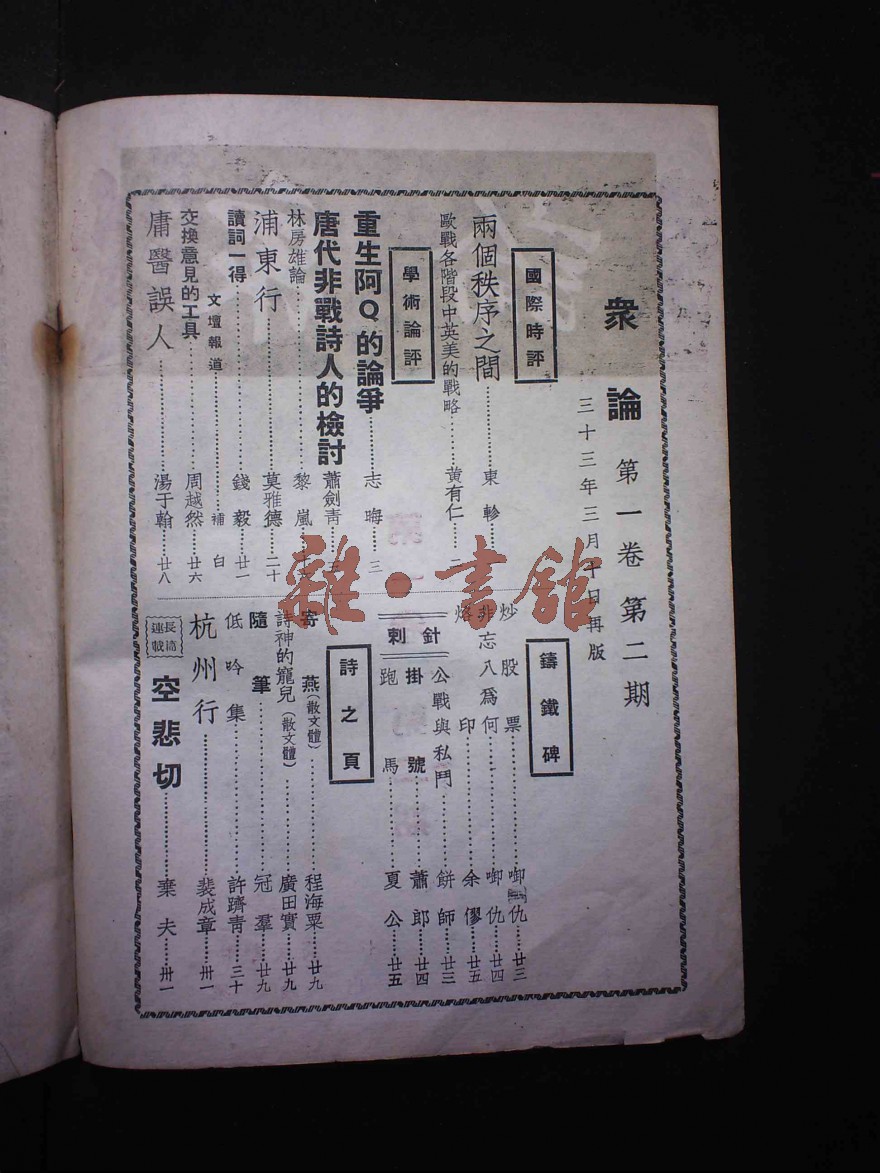 衆論 第一卷 第二期
三十三年三月十日再版
國際時評
兩個秩序之間………東軫
歐戰各階段中英美的戰略………黄有仁……二
學術論評
重生阿Q的論爭………志晦……三
唐代非戰詩人的檢討 蕭劍青
林房雄論………黎嵐
浦東行………莫雅德……二十
讀詞一得………錢毅……廿一
文壇報道………補白
交換意見的工具………周越然……廿六
庸醫誤人………湯于翰……廿八
鑄鐵碑
炒股票………啣仇……廿三
非忘八爲何………啣仇……廿四
烙印………余僇……廿五
針刺
公戰與私鬥………餅師……廿三
掛號………蕭郎……廿四
跑馬………夏公……廿五
詩之頁
寄燕(散文體)………程海粟……廿九
詩神的寵兒(散文體)………廣田實……廿九
隨筆………冠羣……廿九
低吟集………許躋青……三十
杭州行………裴成章……卅一
長篇連載
空悲切………棄夫……卅一
雜·書館